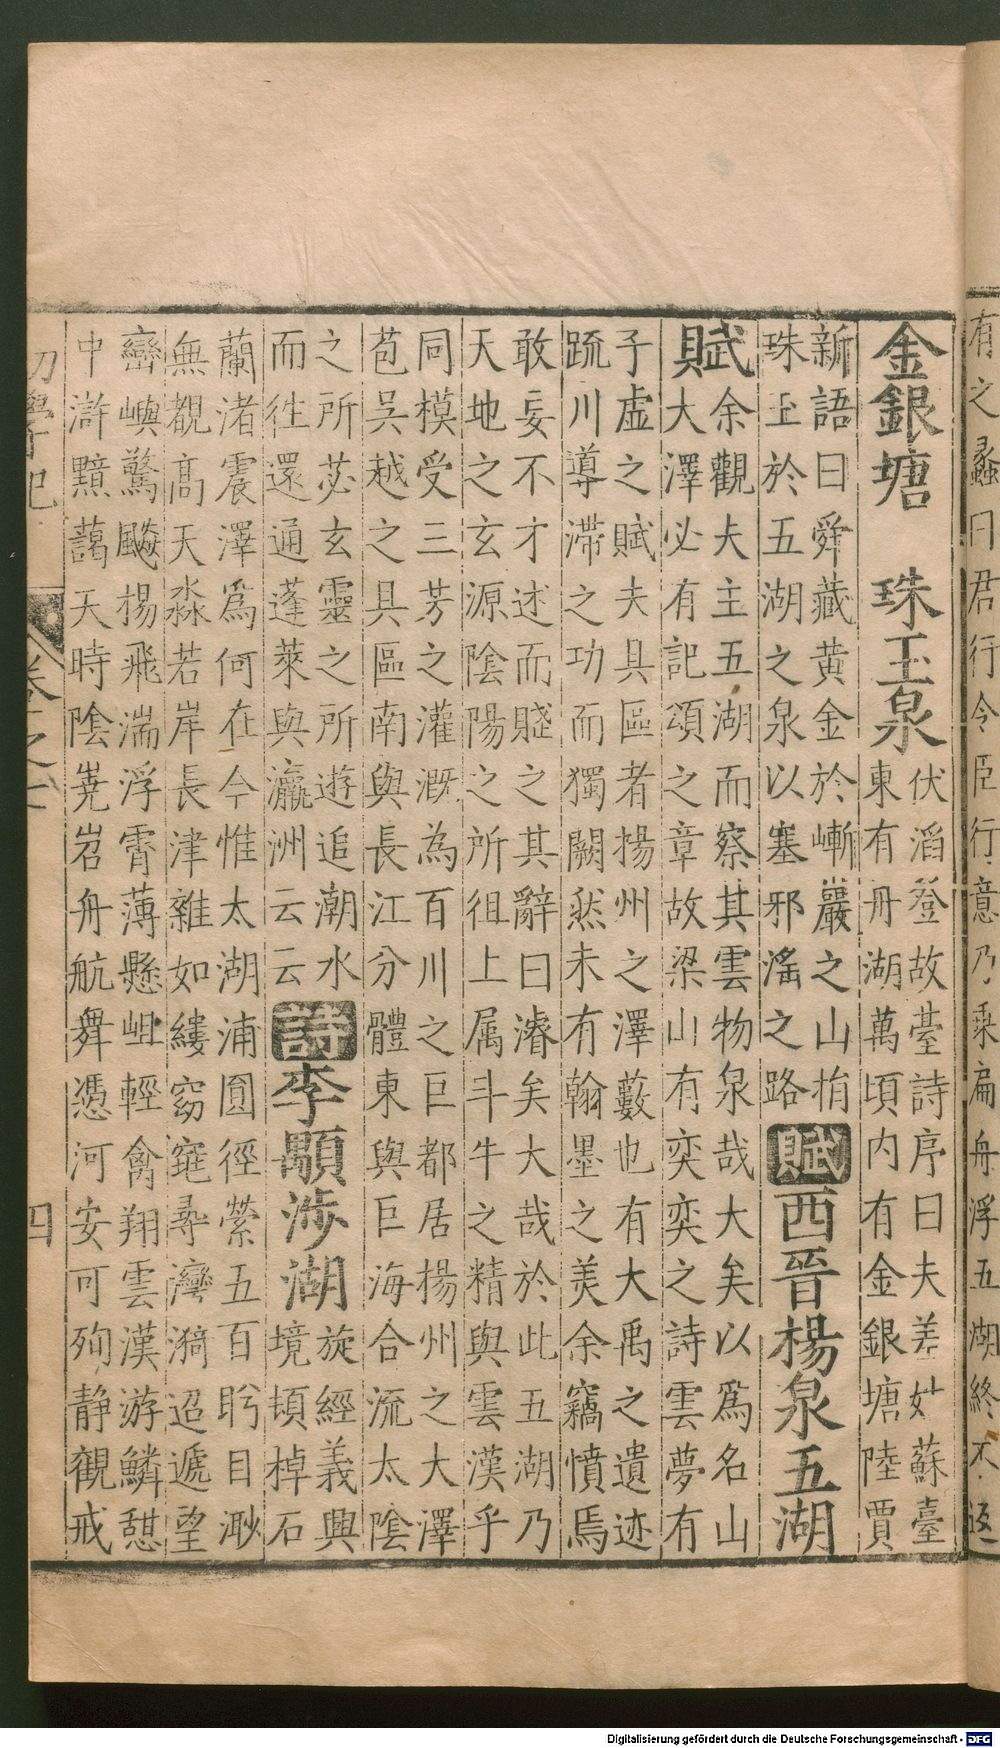 有之蠡曰君行令臣行意乃乘扁舟浮五湖終不返
金銀塘　珠玉泉
伏滔登故臺詩序曰夫差姑蘇臺
東有舟湖萬頃内有金銀塘陸賈
新語曰舜藏黄金於嶄巖之山捐
珠玉於五湖之泉以塞邪滛之路
賦西晉楊泉五湖
賦
余觀夫主五湖而察其雲物泉哉大矣以爲名山
大澤必有記頌之章故梁山有奕奕之詩雲夢有
子虚之賦夫具區者揚州之澤藪也有大禹之遺迹
疏川導滞之功而獨闕然未有翰墨之羙余竊憤焉
敢妄不才述而賤之其辭曰濬矣大哉於此五湖乃
天地之玄源隂陽之所徂上属斗牛之精與雲漢乎
同模受三芳之灌溉為百川之巨都居楊州之大澤
苞吴越之具區南與長江分體東與巨海合流太隂
之所苾玄靈之所遊追潮水
而徃還通蓬萊與瀛洲云云
詩李顒涉湖
旋經義興
境頓棹石
蘭渚震澤爲何在今惟太湖浦圓徑縈五百眄目渺
無覩髙天淼若岸長津雜如縷窈窕尋灣漪迢遞望
巒嶼驚飈楊飛湍浮霄薄懸岨輕禽翔雲漢游鱗憇
中滸黯藹天時隂岧舟航舞憑河安可殉静觀戒
初學記　卷之　四
Digitalisierung gefördert durch die Deutsche Forschungsgemeinschaft - DFG